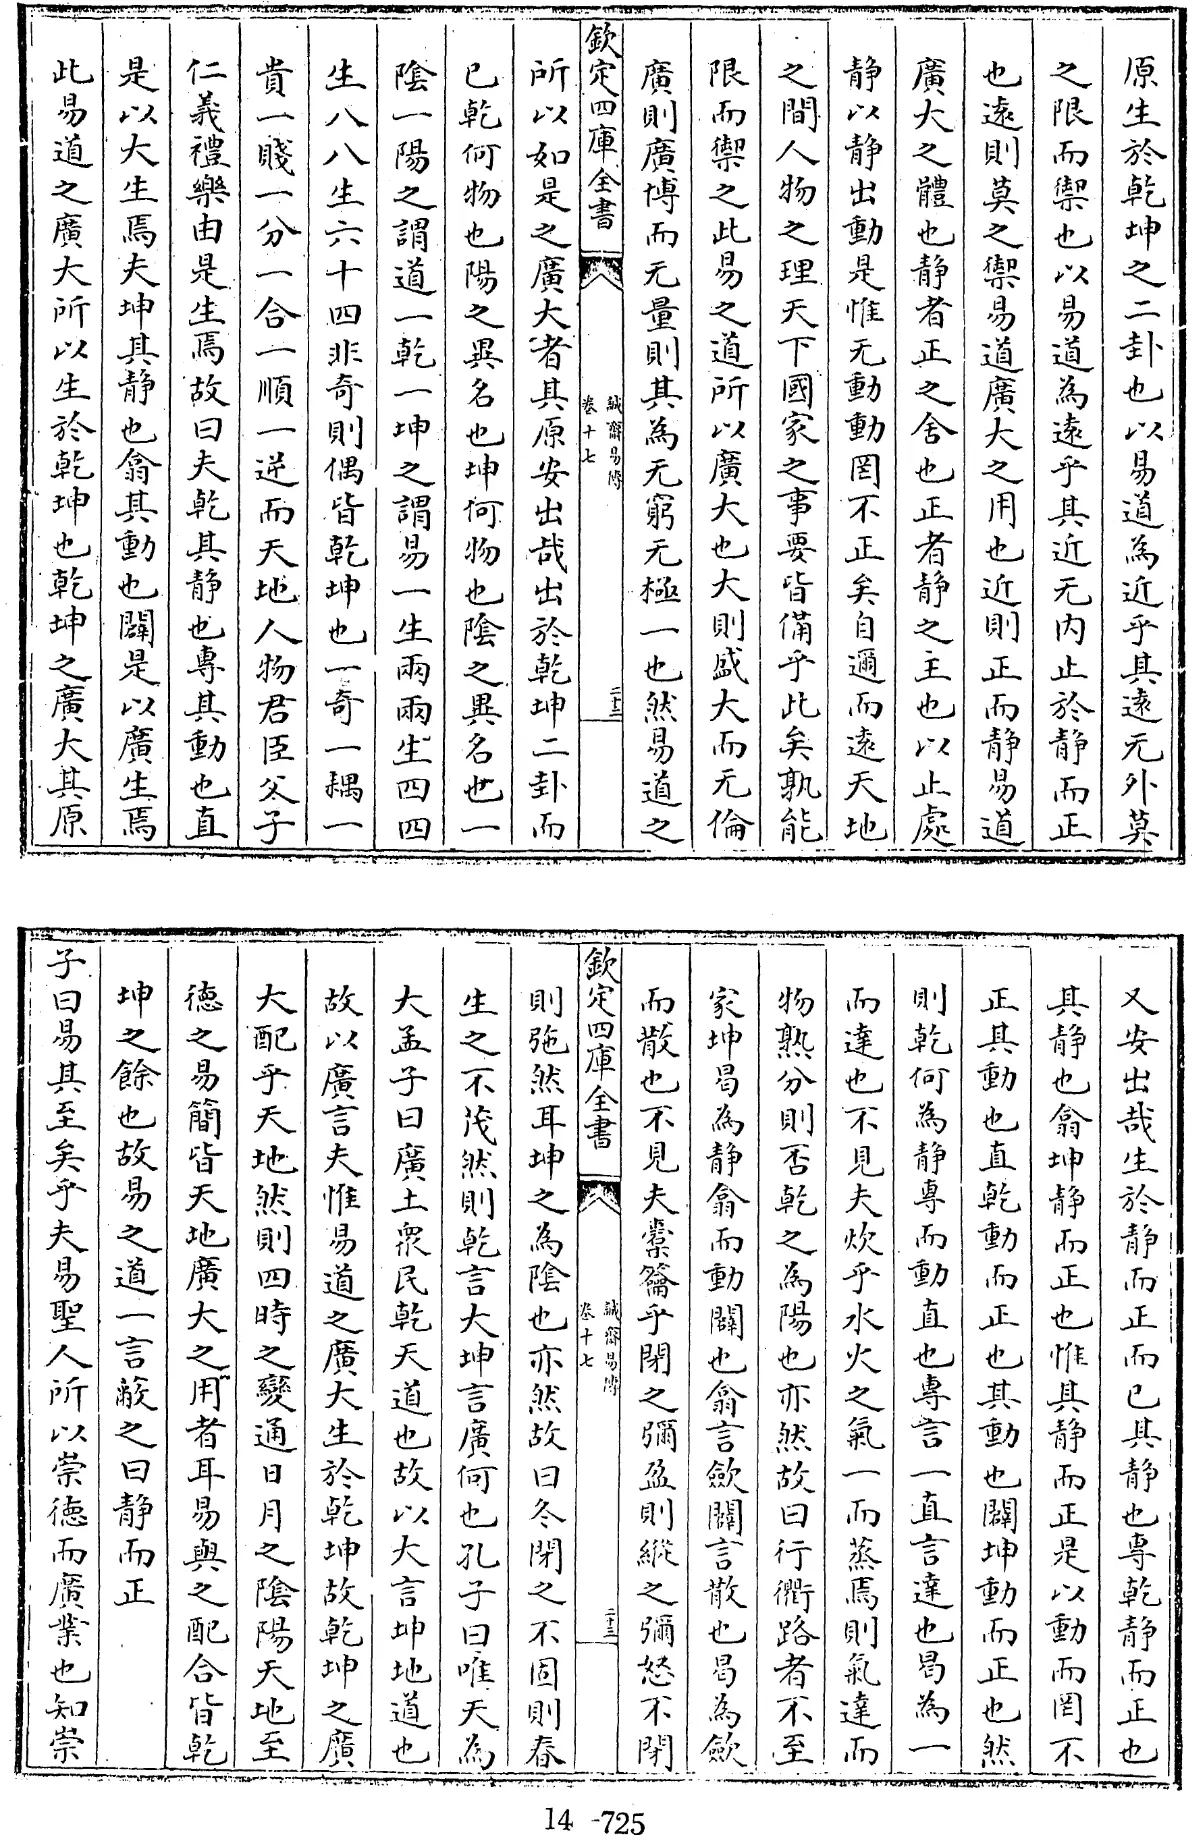 原生於乾坤之二卦也以易道為近乎其遠无外莫
之限而禦也以易道為遠乎其近无内止於静而正
也遠則莫之禦易道廣大之用也近則正而静易道
廣大之體也静者正之舍也正者静之主也以止處
静以静出動是惟无動動罔不正矣自邇而遠天地
之間人物之理天下國家之事要皆備乎此矣孰能
限而禦之此易之道所以廣大也大則盛大而无倫
廣則廣博而无量則其為无窮无極一也然易道之
欽定四庫全書
誠齋易傳
卷十七
二十二
所以如是之廣大者其原安出哉出於乾坤二卦而
已乾何物也陽之異名也坤何物也陰之異名也一
陰一陽之謂道一乾一坤之謂易一生兩兩生四四
生八八生六十四非奇則偶皆乾坤也一奇一耦一
貴一賤一分一合一順一逆而天地人物君臣父子
仁義禮樂由是生焉故曰夫乾其静也專其動也直
是以大生焉夫坤其静也翕其動也闢是以廣生焉
此易道之廣大所以生於乾坤也乾坤之廣大其原
又安出哉生於静而正而已其静也專乾静而正也
其静也翕坤静而正也惟其静而正是以動而罔不
正其動也直乾動而正也其動也闢坤動而正也然
則乾何為静專而動直也專言一直言達也曷為一
而達也不見夫炊乎水火之氣一而蒸焉則氣達而
物熟分則否乾之為陽也亦然故曰行衢路者不至
家坤曷為静翕而動闢也翕言歛闢言散也曷為歛
而散也不見夫橐籥乎閉之彌盈則縱之彌怒不閉
欽定四庫全書
誠齋易傳
卷十七
二十三
則弛然耳坤之為陰也亦然故曰冬閉之不固則春
生之不茂然則乾言大坤言廣何也孔子曰唯天為
大孟子曰廣土衆民乾天道也故以大言坤地道也
故以廣言夫惟易道之廣大生於乾坤故乾坤之廣
大配乎天地然則四時之變通日月之陰陽天地至
德之易簡皆天地廣大之用者耳易與之配合皆乾
坤之餘也故易之道一言蔽之曰静而正
子曰易其至矣乎夫易聖人所以崇德而廣業也知崇
14-725